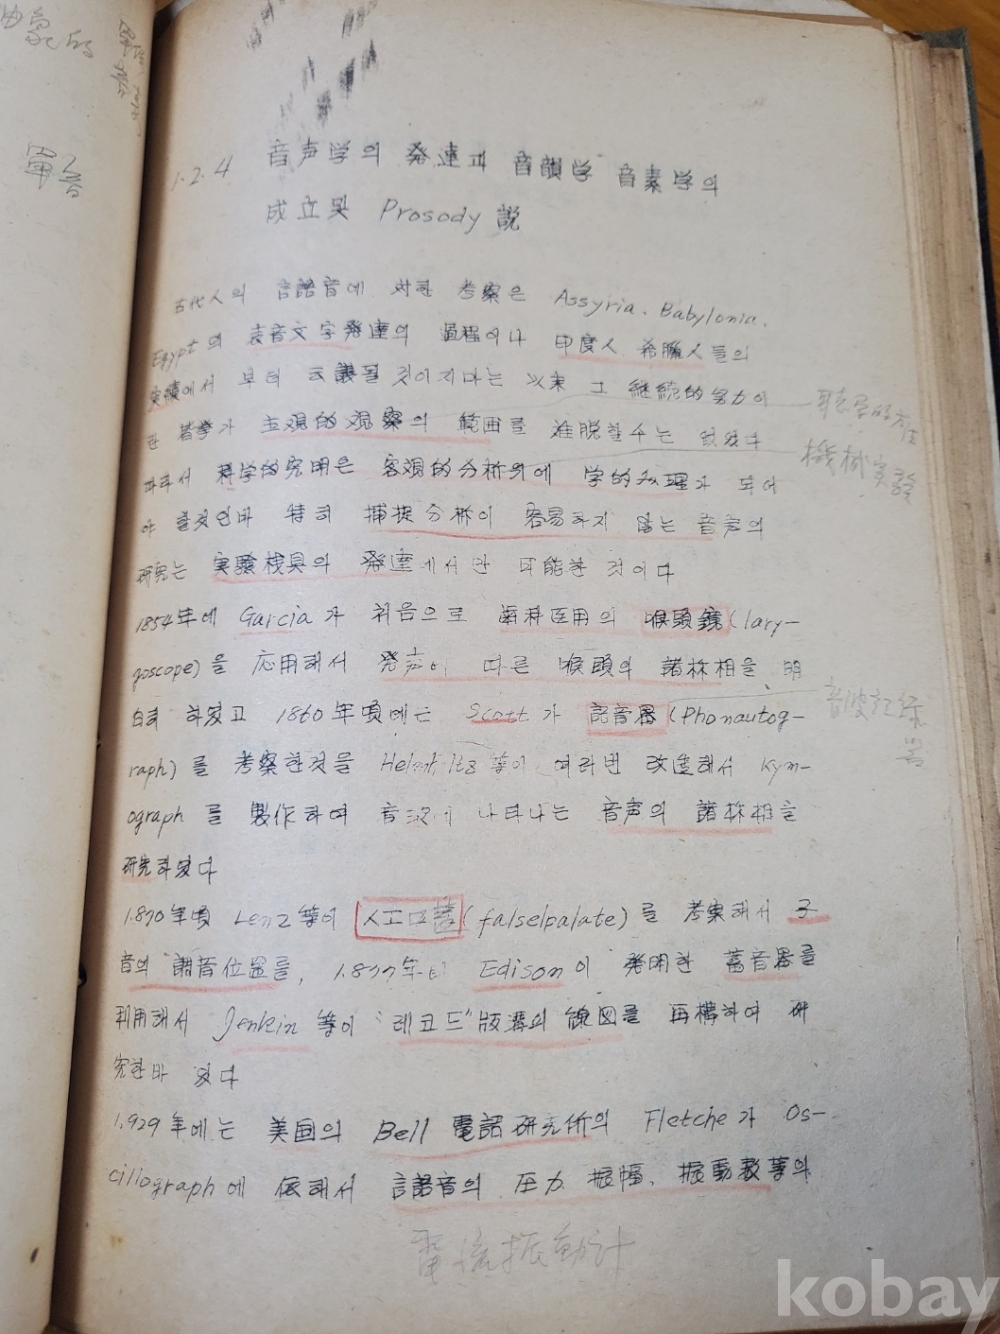 1.2.4 音声学의 発達과 音韻学 音素学의
成立및 Prosody 説
古代人의 言語音에 対한 考察은 Assyria. Babylonia.
Egypt의 表音文字発達의 過程이나 印度人 希臘人들의
実績에서 부터 云謂될 것이지마는 以来 그 継続的努力이
란 皆学가 主观的观察의 範囲를 難脱할수는 없었다
따라서 科学的究明은 客观的分析위에 学的処理가 되어
야 할것인바 特히 捕捉分析이 容易하지 않는 音声의
研究는 実験校具의 発達에서만 可能한 것이다
1854年에 Garcia가 처음으로 歯科医用의 喉頭鏡(lary-
goscope)을 応用해서 発声에 따른 喉頭의 諸様相을 明
白히 하였고 1860年頃에는 Scott가 記音器(Phonautog-
raph)를 考察한것을 Helmholtz等이 여러번 改造해서 Kym-
ograph를 製作하여 音波에 나타나는 音声의 諸様相을
研究하였다
1.870年頃 Lenz等이 人工口蓋(falselpalate)를 考案해서 子
音의 調音位置를, 1.877年에 Edison이 発明한 蓄音器를
利用해서 Jenkin 等이 "레코드"版溝의 線図를 再構하여 研
究한바 있다
1.929年에는 美国의 Bell 電話研究所의 Fletche가 Os-
cillograph에 依해서 言語音의 圧力 振幅. 振動数等의
電流振動計
機械実験
音波記録
器